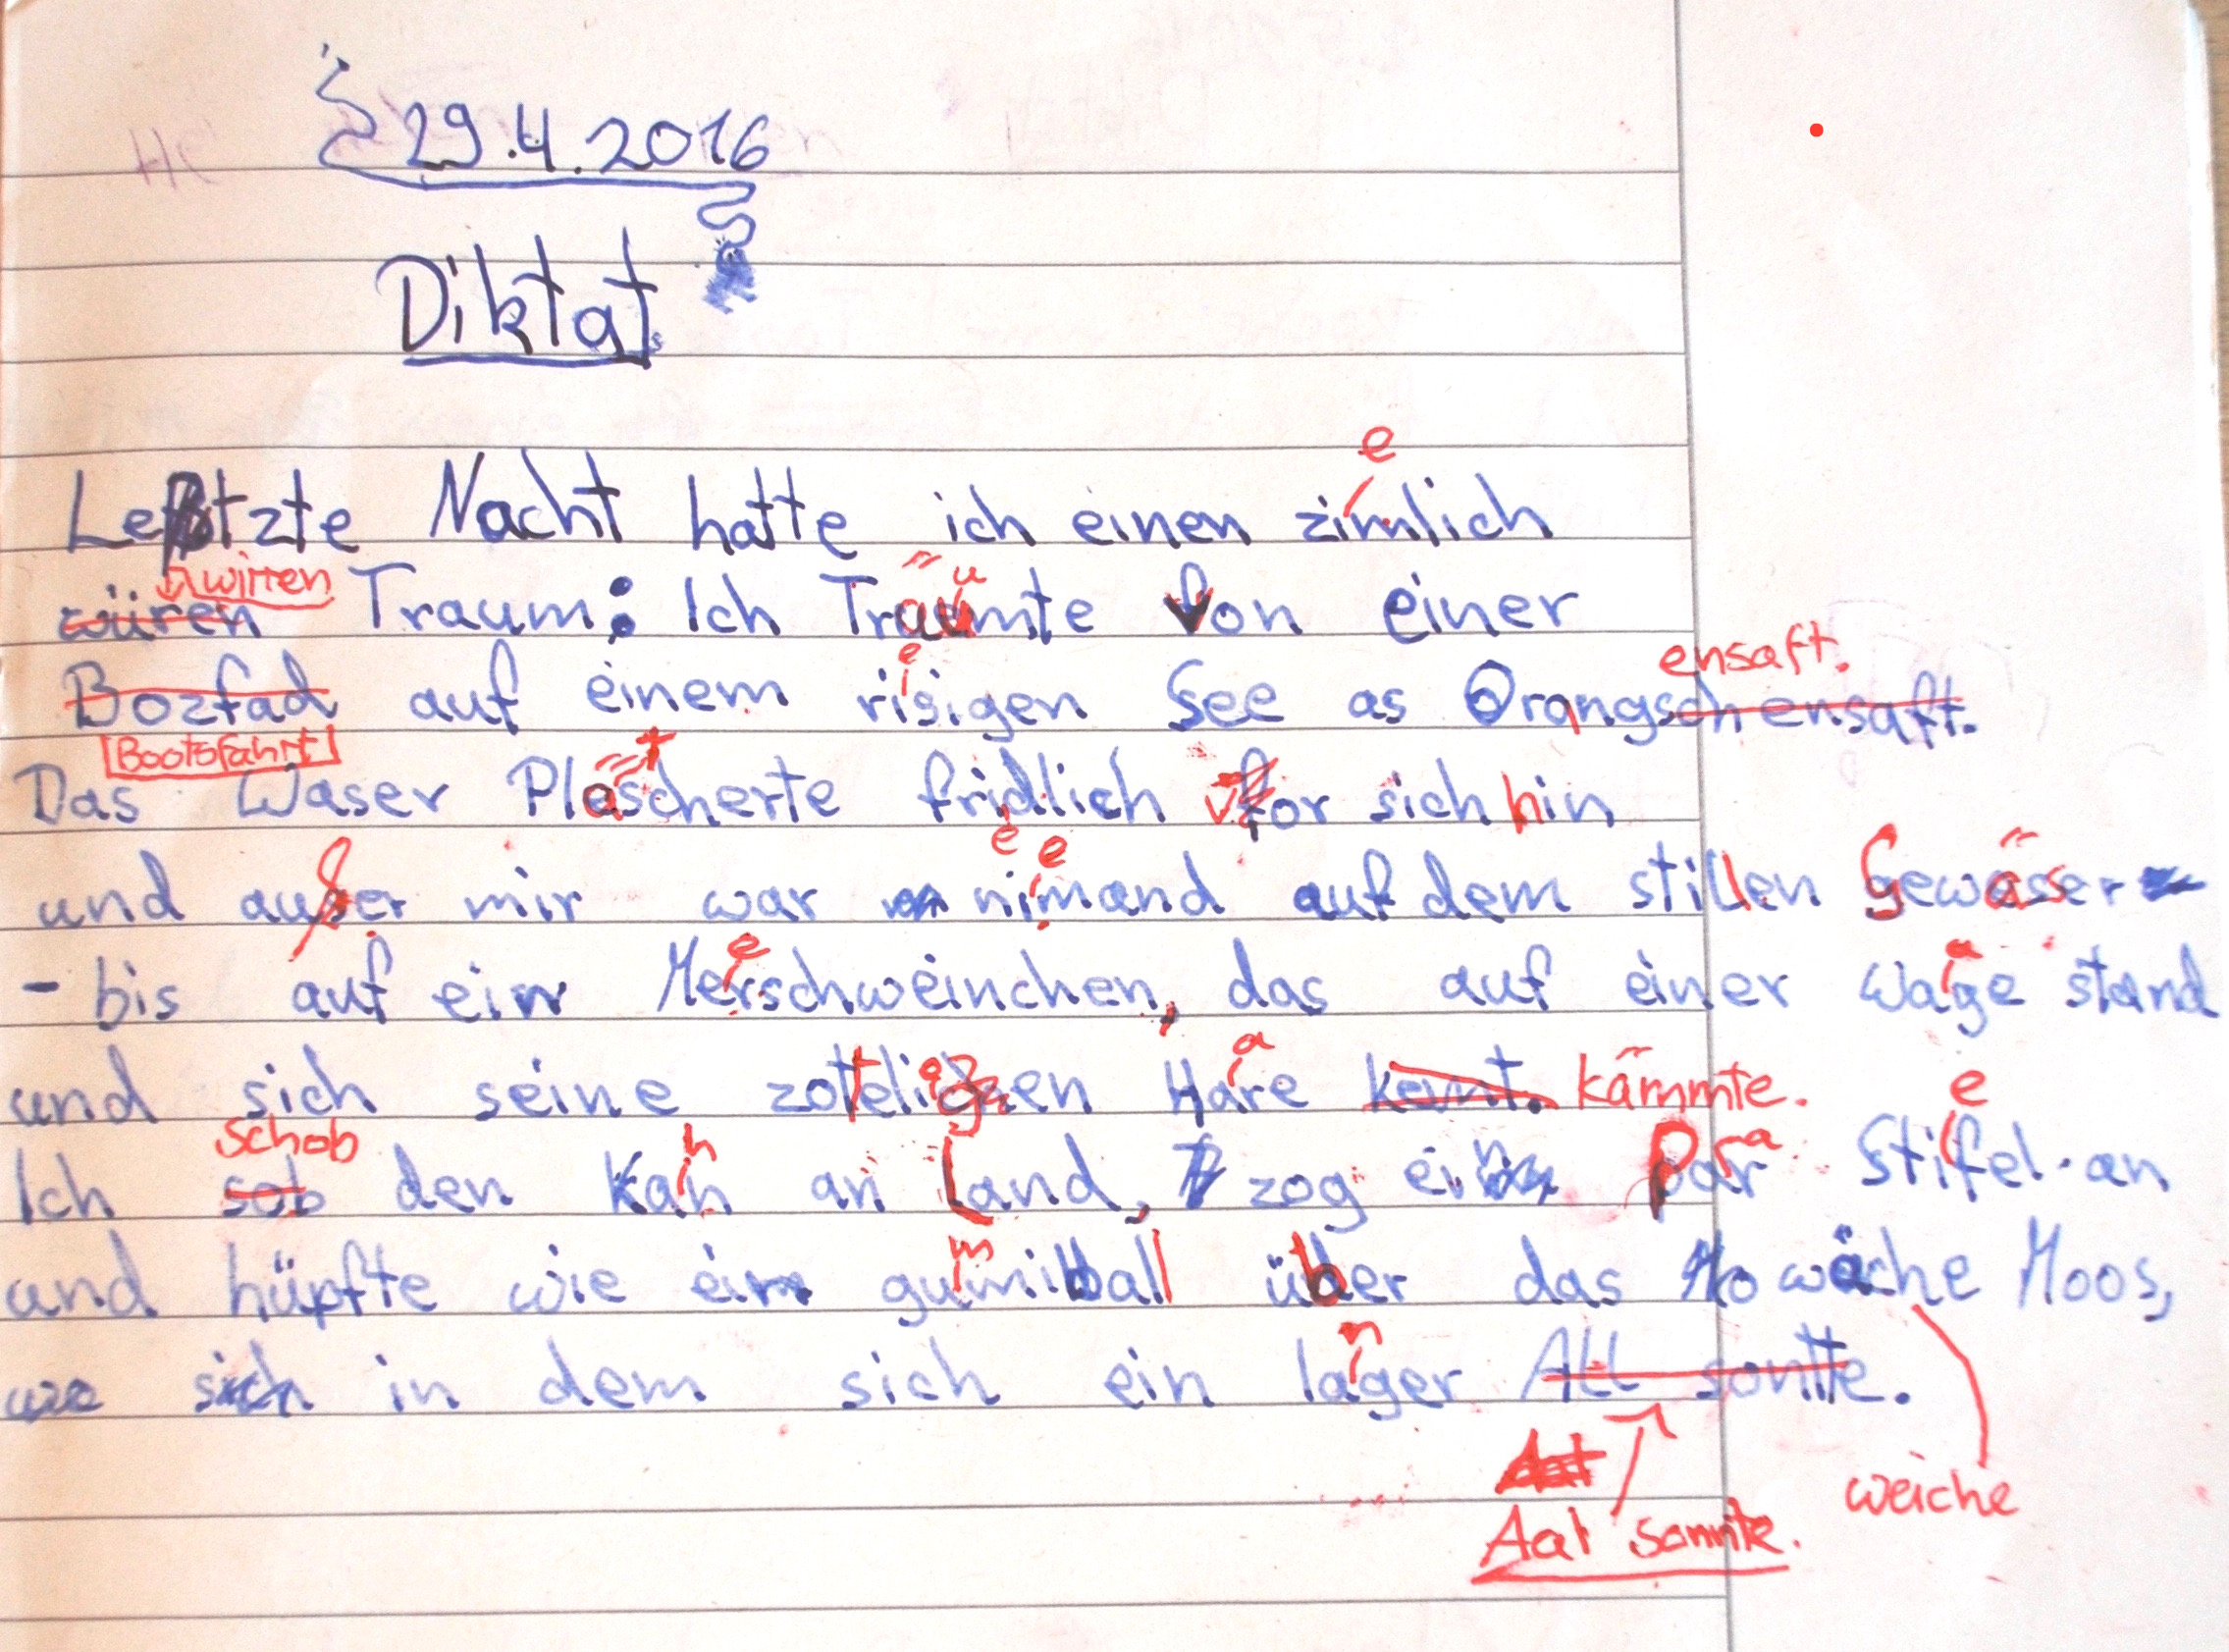 29.4.2016
Diktat
e
Letzte Nacht hatte ich einen zimlich
wirren
würen Traum: Ich Träumte von einer
e
ensaft.
Bozfad auf einem risigen See as Orangschensaft.
Bootsfahrt
Das Waser Pläscherte fridlich vor sich hin
e e
und außer mir war nimand auf dem stillen Gewässer
e a
- bis auf ein Merschweinchen, das auf einer Wage stand
a
und sich seine zotteligen Hare kemt. kämmte.
schob h a e
Ich sob den Kan an Land, zog ein Par Stifel an
m
und hüpfte wie ein gumiball über das wäche Moos,
n
in dem sich ein lager All sontte.
weiche
Aal sonnte.